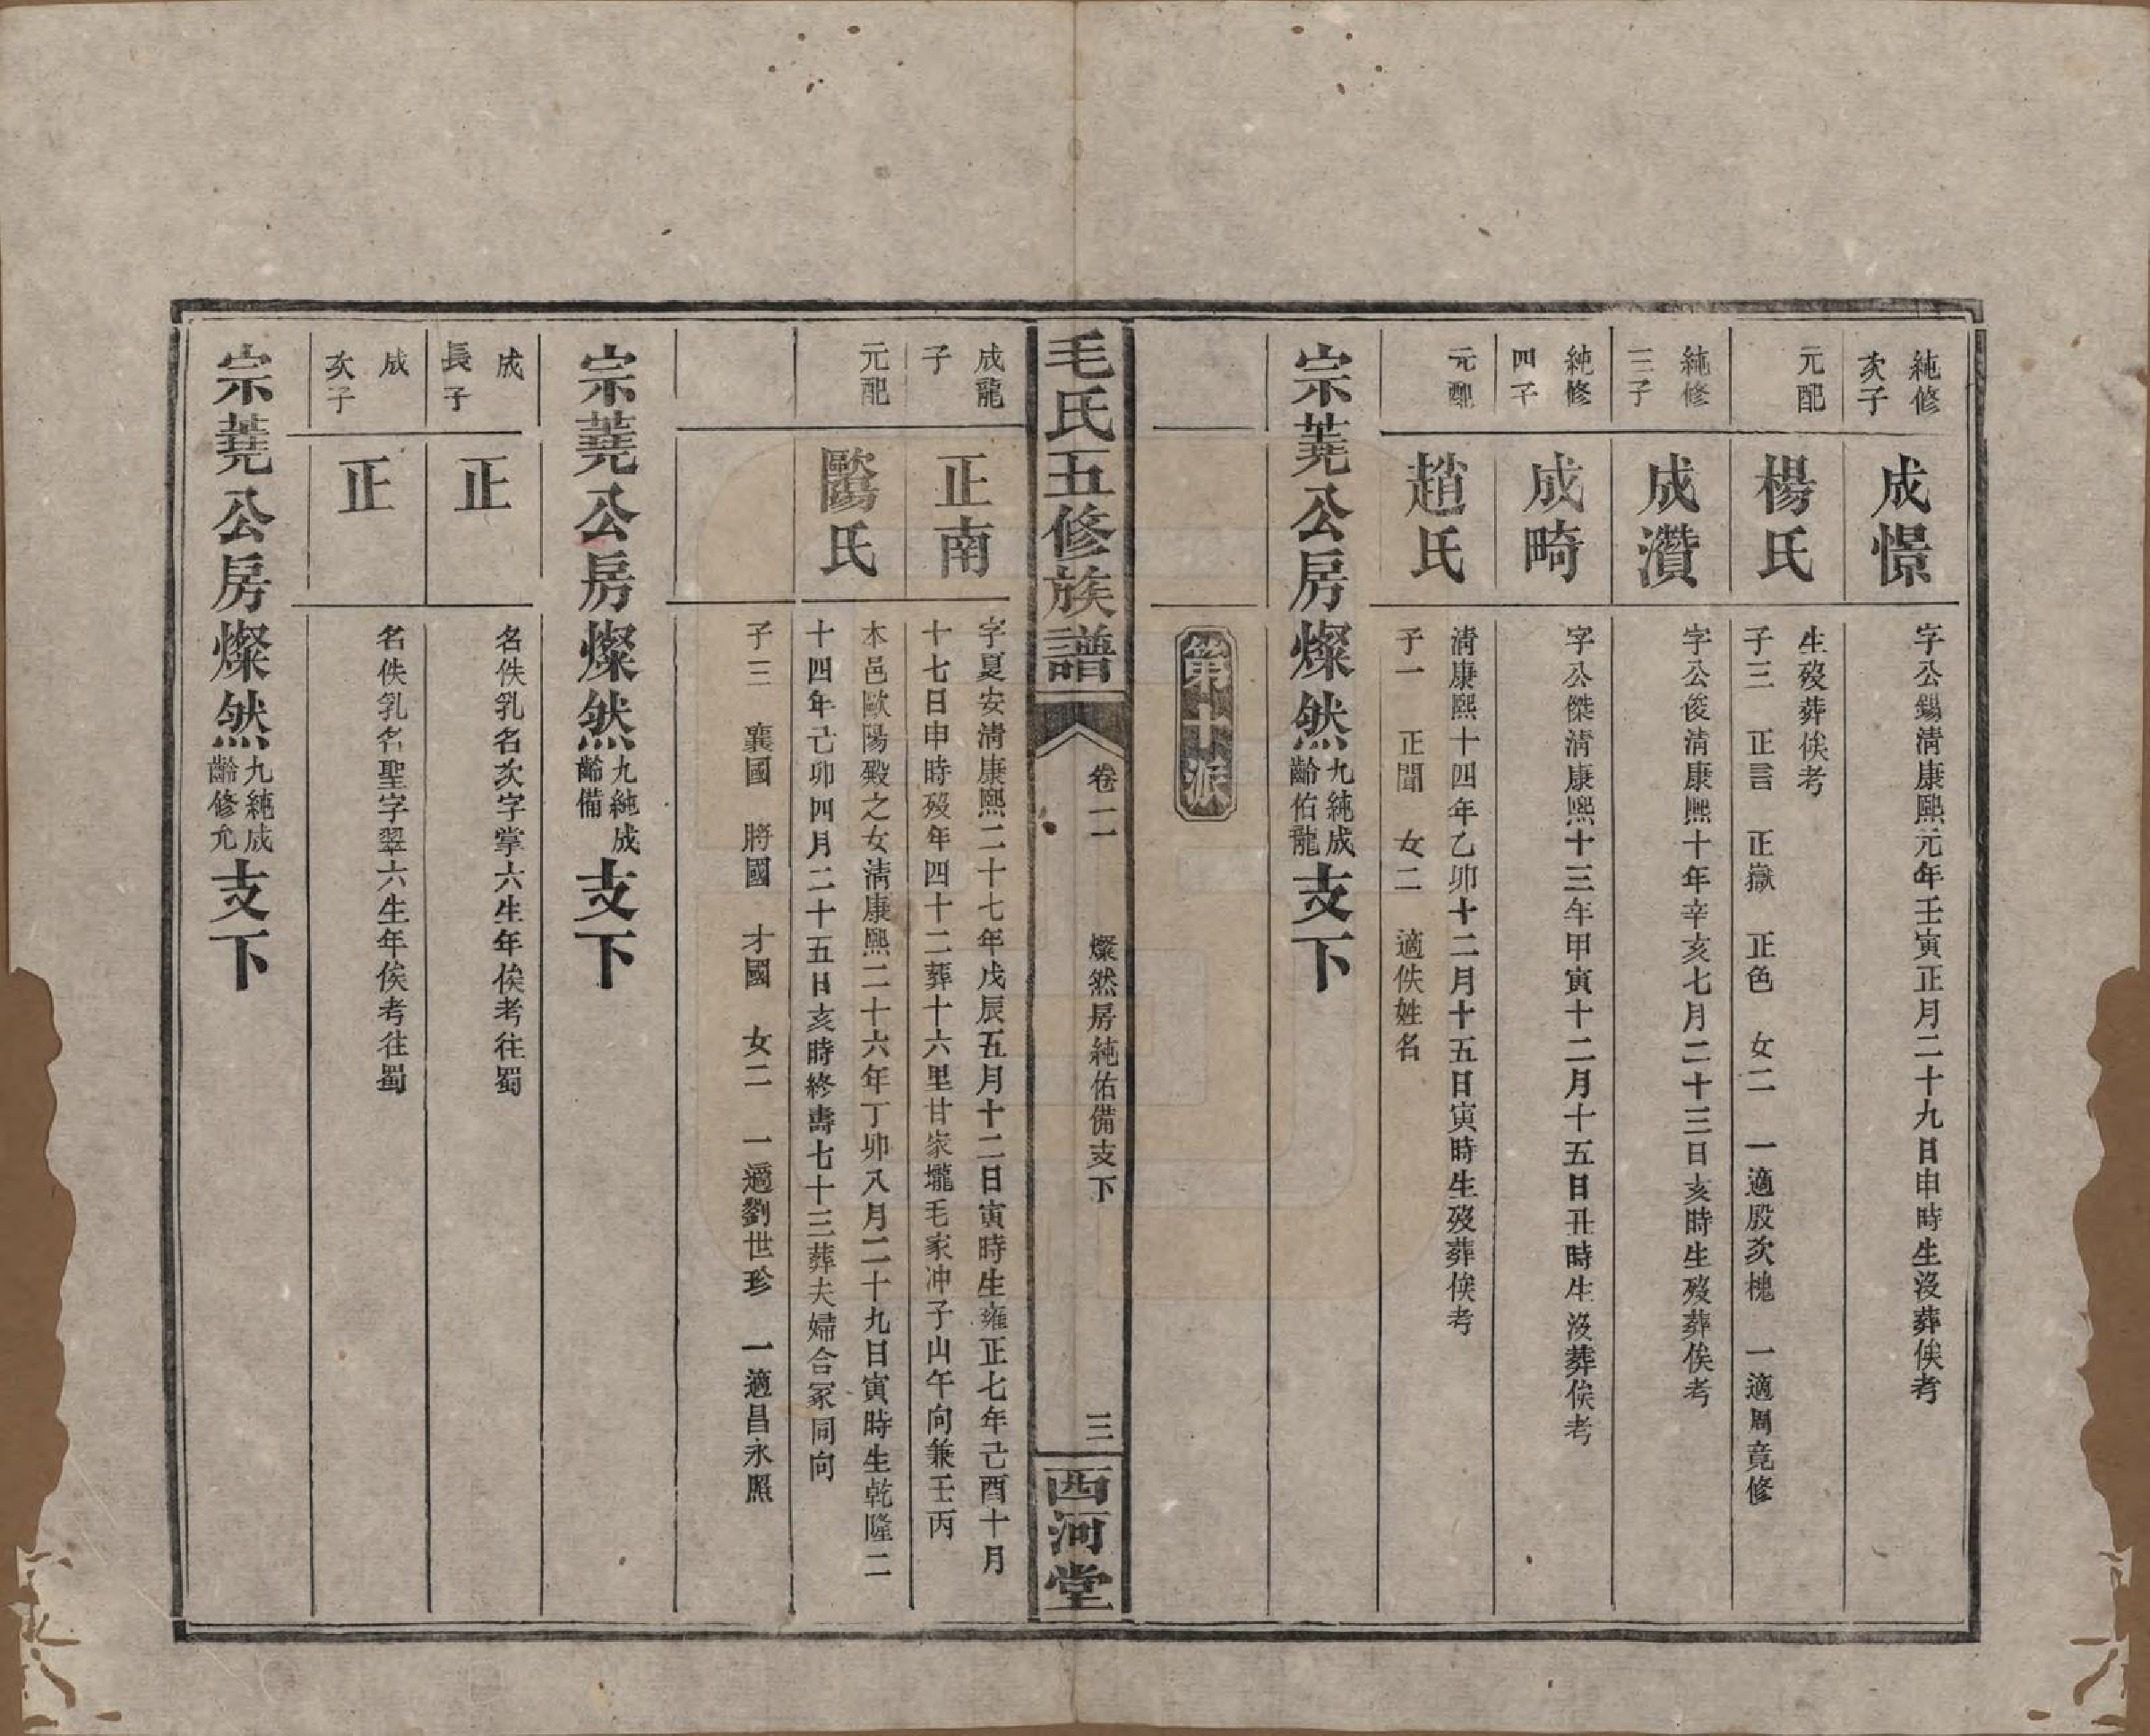 純修
次子
成憬
字公錫清康熙元年壬寅正月二十九日申時生沒葬俟考
元配
楊氏
生歿葬俟考
子三 正言 正嶽 正色 女二 一適殷次槐 一適周竟修
純修
三子
成瓚
字公俊清康熙十年辛亥七月二十三日亥時生歿葬俟考
純修
四子
成畸
字公傑清康熙十三年甲寅十二月十五日丑時生沒葬俟考
元配
趙氏
清康熙十四年乙卯十二月十五日寅時生歿葬俟考
子一 正聞 女二 適佚姓名
宗蕘公房燦然九齡純佑成龍支下
第十派
毛氏五修族譜
卷二
燦然房純佑備支下
三
西河堂
成龍
子
正南
字夏安清康熙二十七年戊辰五月十二日寅時生雍正七年己酉十月
十七日申時歿年四十二葬十六里甘家壠毛家冲子山午向兼壬丙
元配
歐陽氏
本邑歐陽殿之女清康熙二十六年丁卯八月二十九日寅時生乾隆二
十四年己卯四月二十五日亥時終壽七十三葬夫婦合冢同向
子三 襄國 將國 才國 女二 一適劉世珍 一適昌永照
宗蕘公房燦然九齡純備成支下
成
長子
正
名佚乳名次字掌六生年俟考往蜀
成
次子
正
名佚乳名聖字翠六生年俟考往蜀
宗蕘公房燦然九齡純修成允支下